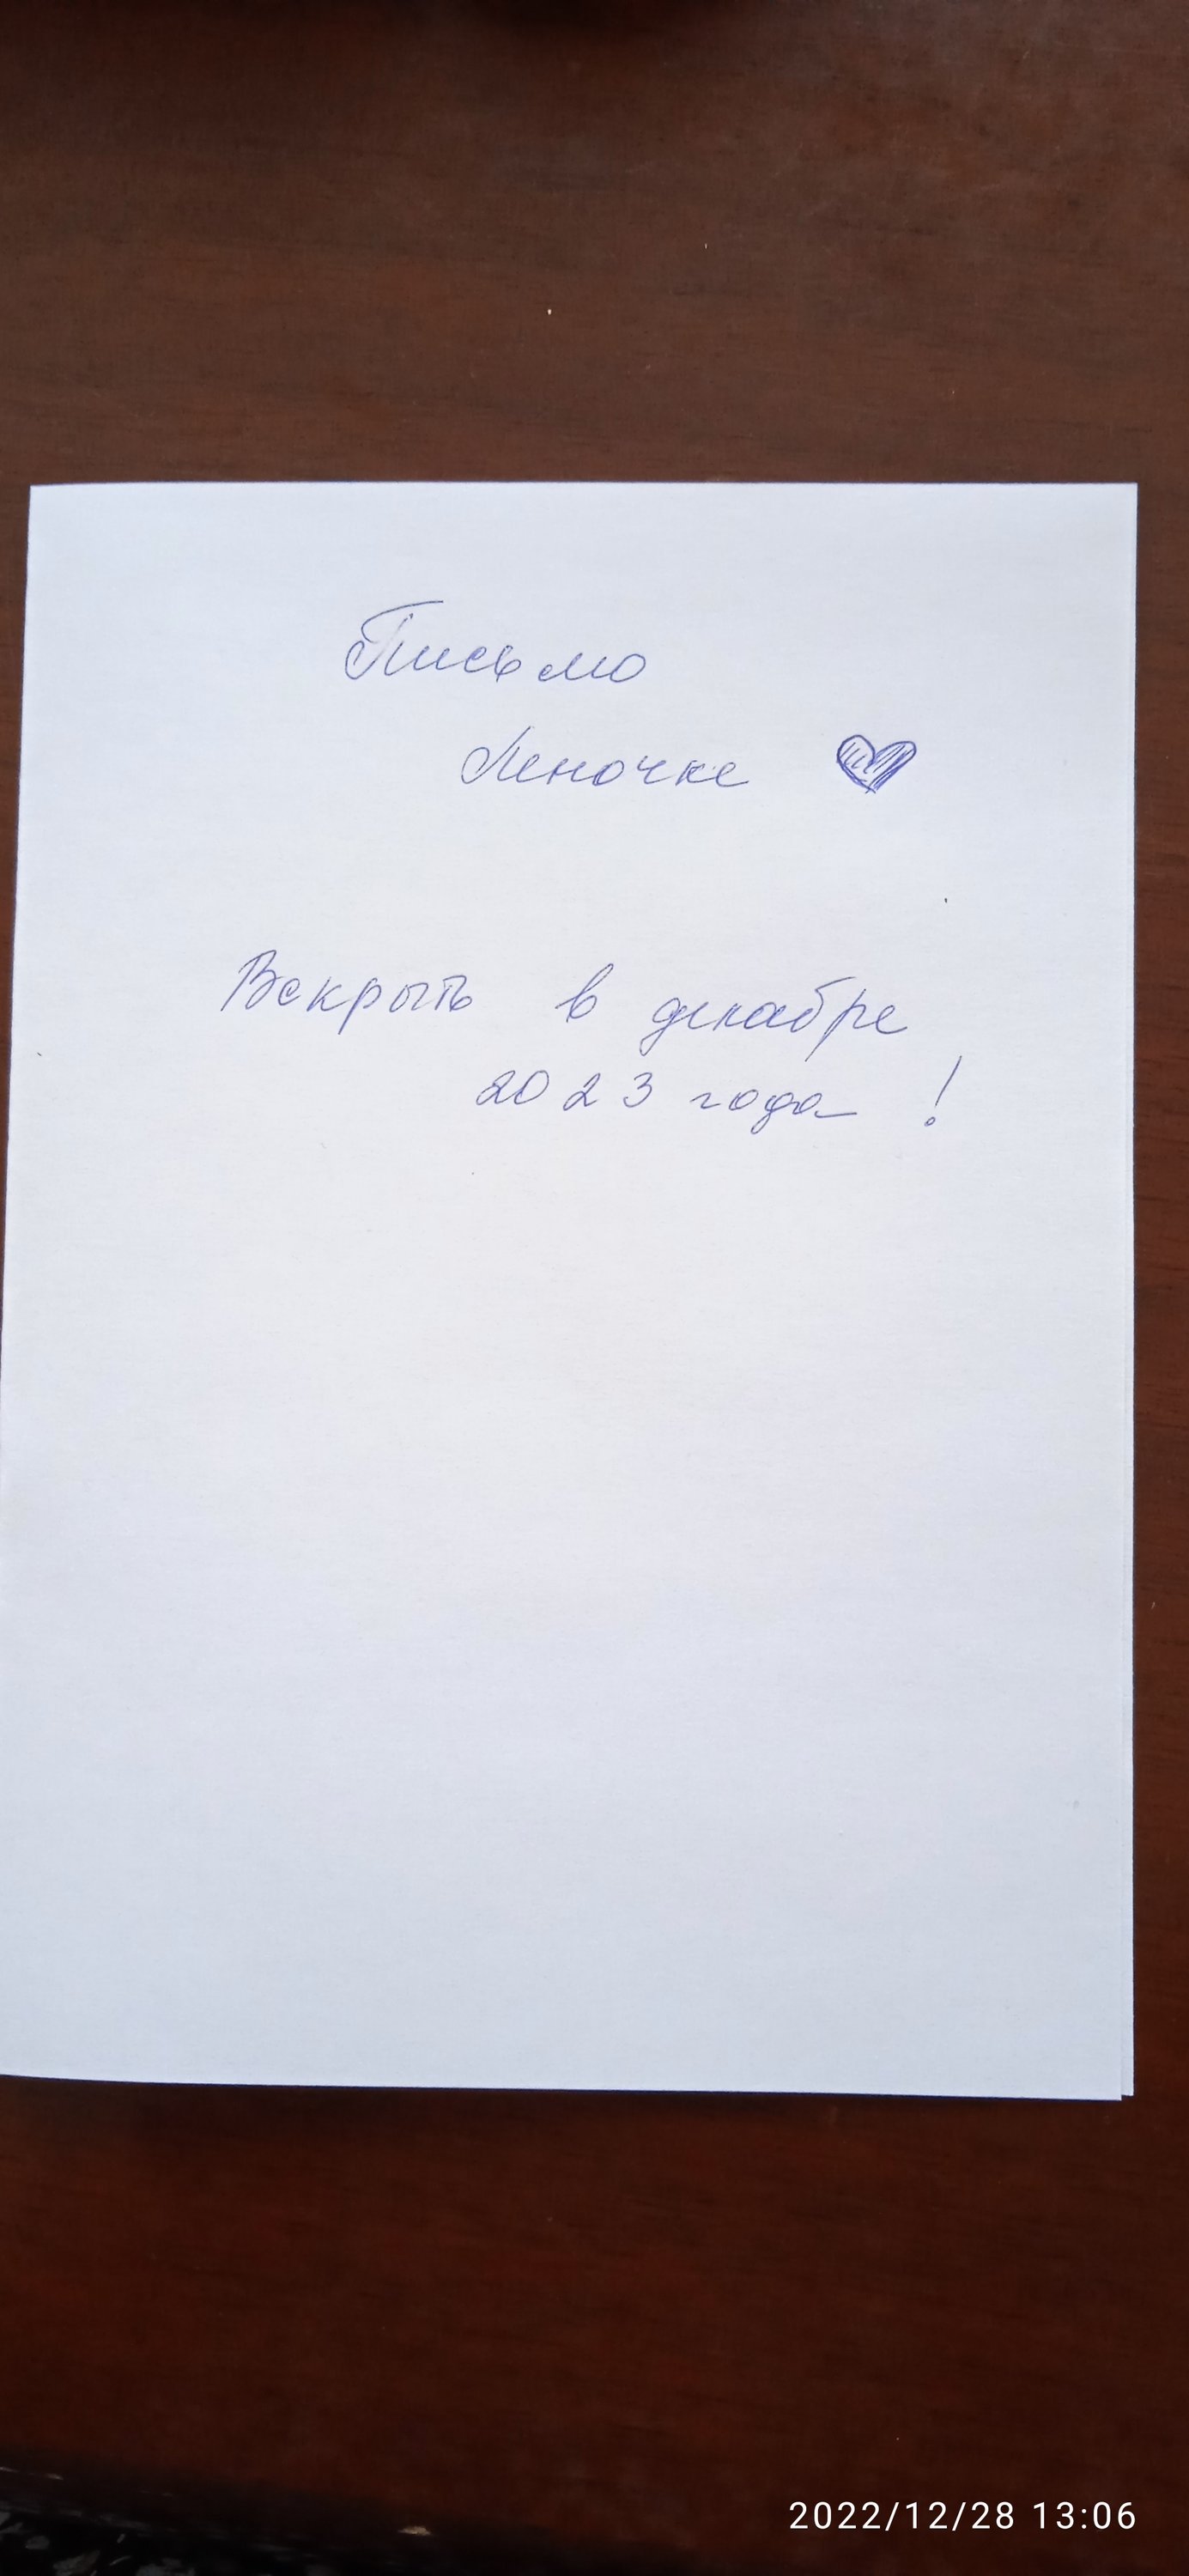 Письмо
Леночке
Вскрыть в декабре
2023 года !
2022/12/28 13:06